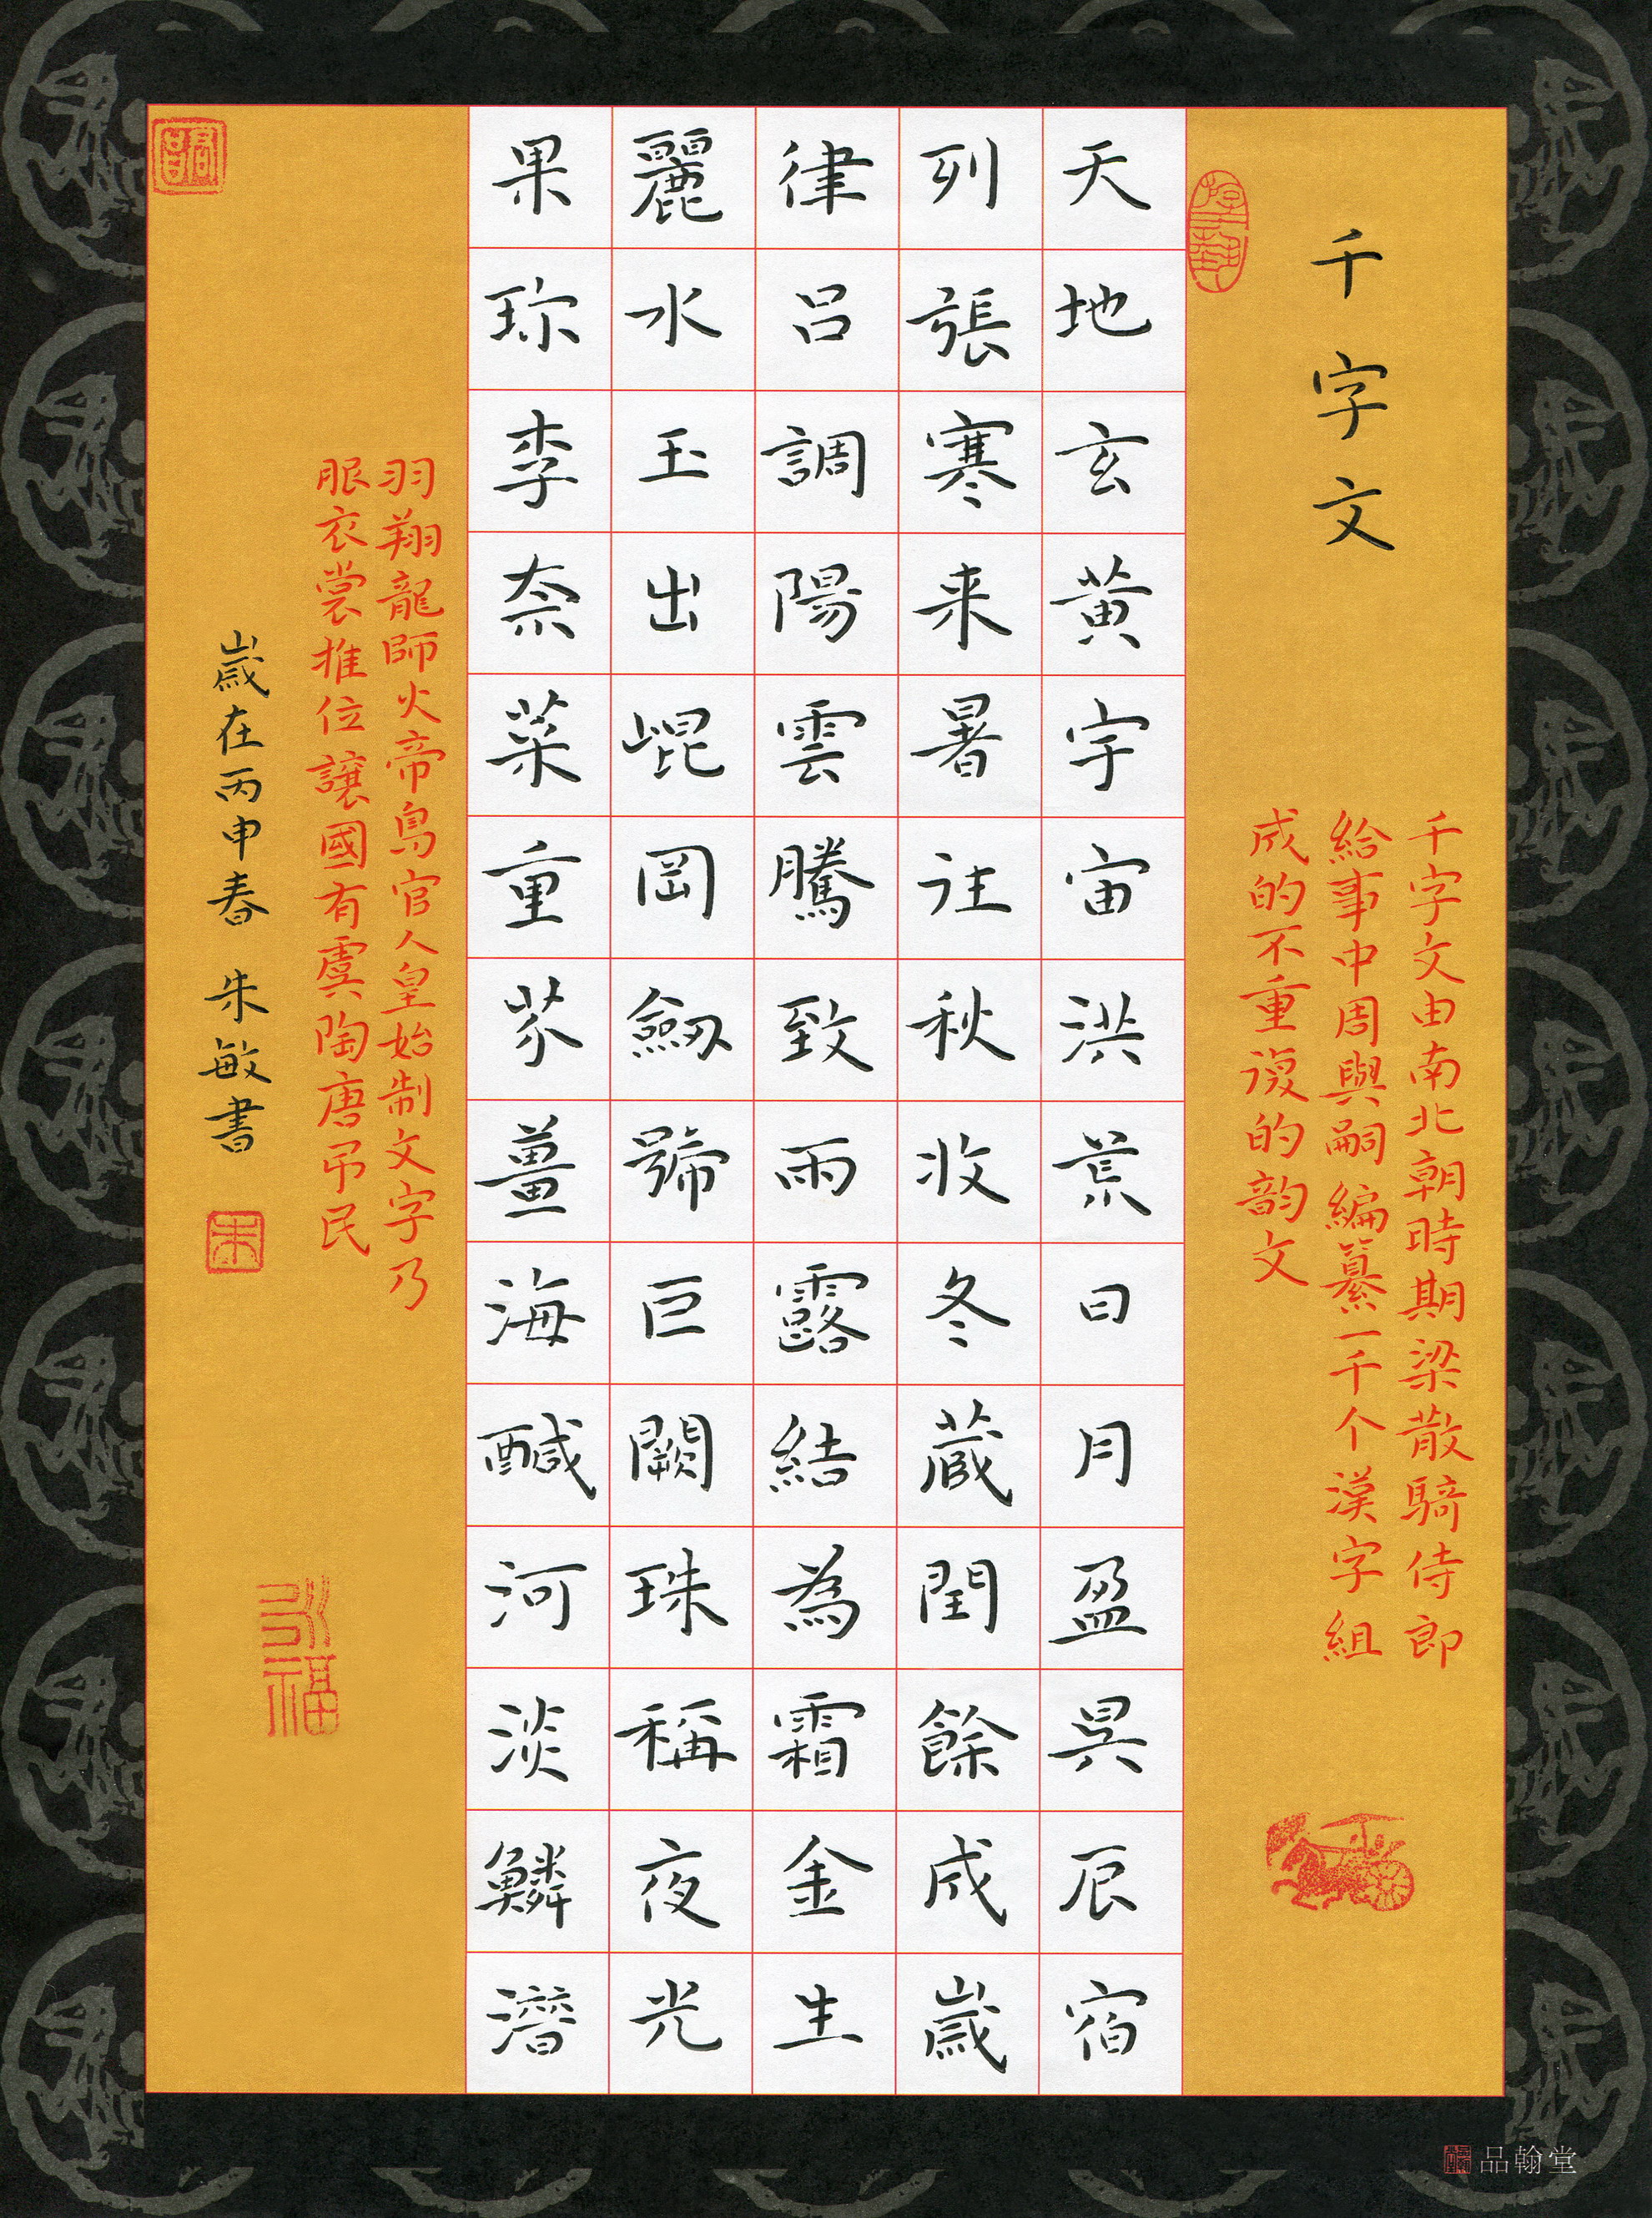 千字文
千字文由南北朝時期梁散騎侍郎
給事中周興嗣編纂一千个漢字組
成的不重復的韵文
天地玄黃宇宙洪荒日月盈昃辰宿
列張寒来暑往秋收冬藏閏餘成歲
律呂調陽雲騰致雨露結為霜金生
麗水玉出崐岡劔號巨闕珠稱夜光
果珎李柰菜重芥薑海醎河淡鱗潛
羽翔龍師火帝鳥官人皇始制文字乃
服衣裳推位讓國有虞陶唐吊民
歲在丙申春 朱敏書
朱
引福
品翰堂